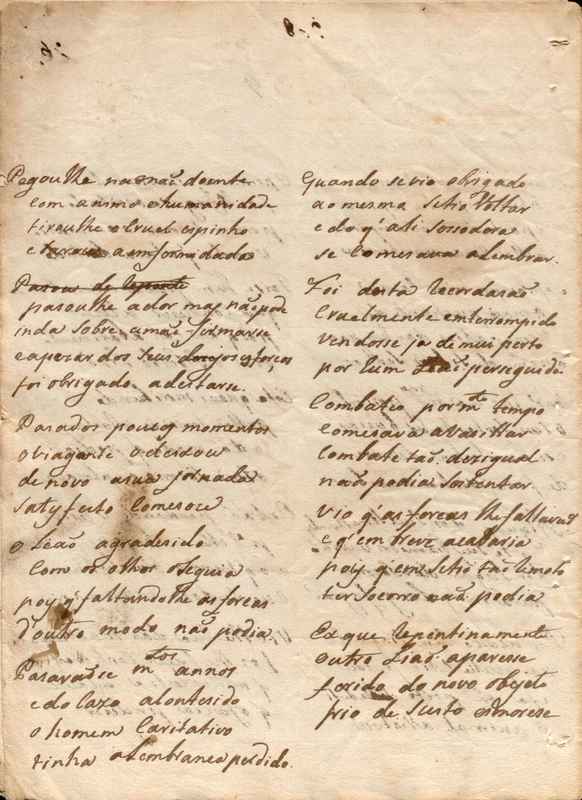 Pegoulhe na mão doente
com animo e humanidade
tiroulhe o cruel espinho
e a emformidade
Pasou de repente
pasoulhe a dor mas não pode
inda sobre a mão firmarse
e apezar dos seus dezejos e forças
foi obrigado a deitarse.
Pasados poucos momentos
o viagante o deixou
de novo a sua jornada
satysfeito comesou
O Leão agradesido
com os olhos o seguia
poys q' faltandolhe as forças
d'outro modo não podia
Pasarãose mtos annos
e do cazo acontesido
o homem caritativo
tinha a lembransa perdido.
Quando se vio obrigado
ao mesmo setio voltar
e do q' ali sosodera
se comesava a lembrar.
Foi desta recordasão
cruelmente emterrompido
vendosse ja de mui perto
por hum Leão perseguido.
Combateo por mto tempo
comesava a vasillar
combate tão dezigual
não podia sostentar
Vio q' as forcas lhe faltavão
e q' em breve acabaria
poys q' em setio tão remoto
ter socorro não podia
Eis que repentinamente
outro Lião aparesse
ferido do novo objeto
frio de susto esmorese